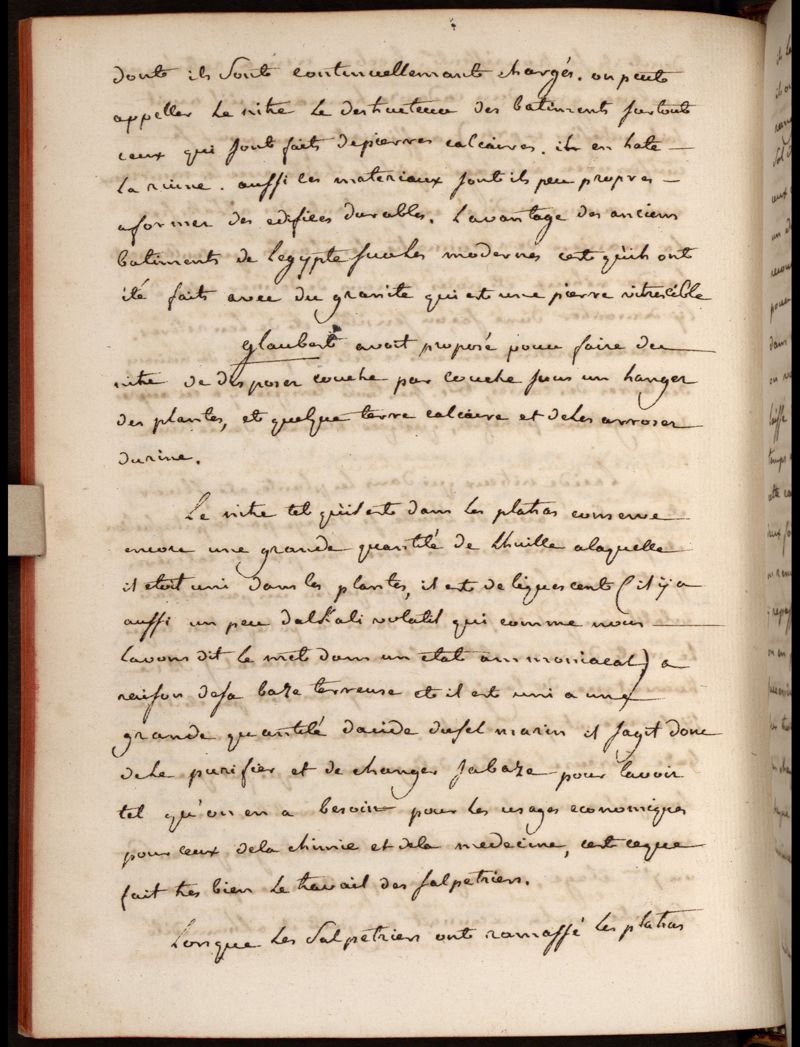 dont ils sont continuellemant chargés. on peut
appeller le nitre le destructeur des batiments surtout
ceux qui sont faits de pierres calcaires. il en hate
la ruine. aussi les materiaux sont ils peu propres
a former des edifices durables. lavantage des anciens
batiments de legypte sur les modernes cest quils ont
été faits avec du granite qui est une pierre vitrescible
glaubert avoit proposé pour faire du
nitre de disposer couche par couche sous un hanger
des plantes, et quelque terre calcaire et de les arroser
durine.
Le nitre tel quil est dans les platras conserve
encore une grande quantité de Lhuille a laquelle
il etoit uni dans les plantes, il est deliquescent (il y a
aussi un peu dalkali volatil qui comme nous
lavons dit le met dans un etat ammoniacal) a
raison de sa baze terreuse et il est uni a une
grande quantité dacide du sel marin il sagit donc
de le purifier et de changer sa baze pour lavoir
tel qu'on en a besoin pour les usages economiques
pour ceux de la chimie et de la medecine, cest ceque
fait tres bien le travail des salpetriers.
Lorsque les salpetriers ont ramassé les platras